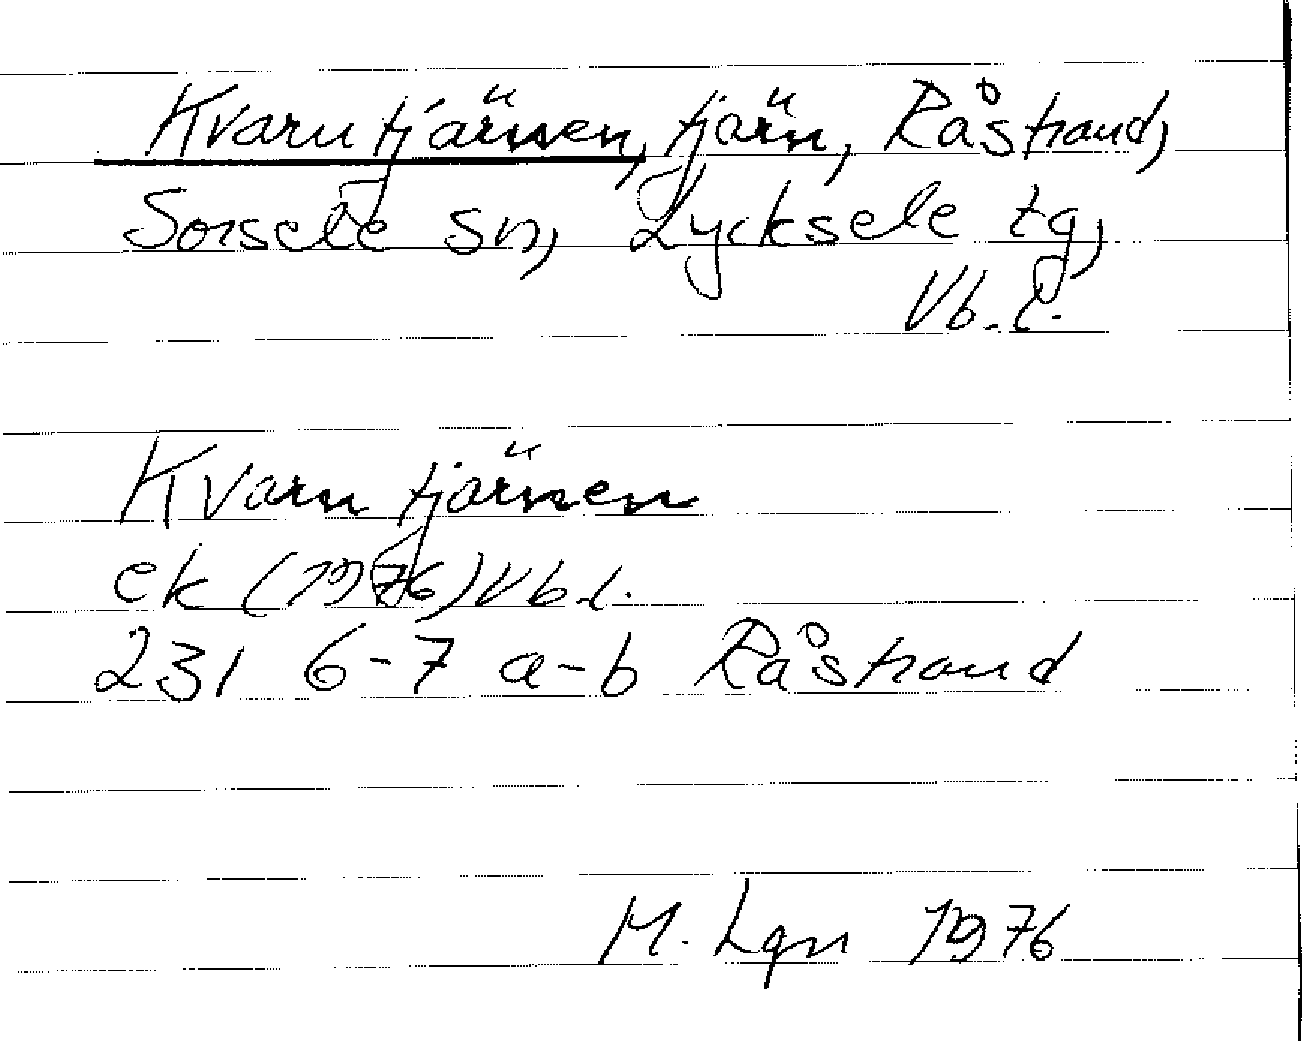 Kvarntjärnen, tjärn, Råstrand,
Sorsele sn, Lycksele tg,
Vb. l.
Kvarntjärnen
ek (1976) Vb. l.
231 6-7 a-b Råstrand
M. Lgn 1976